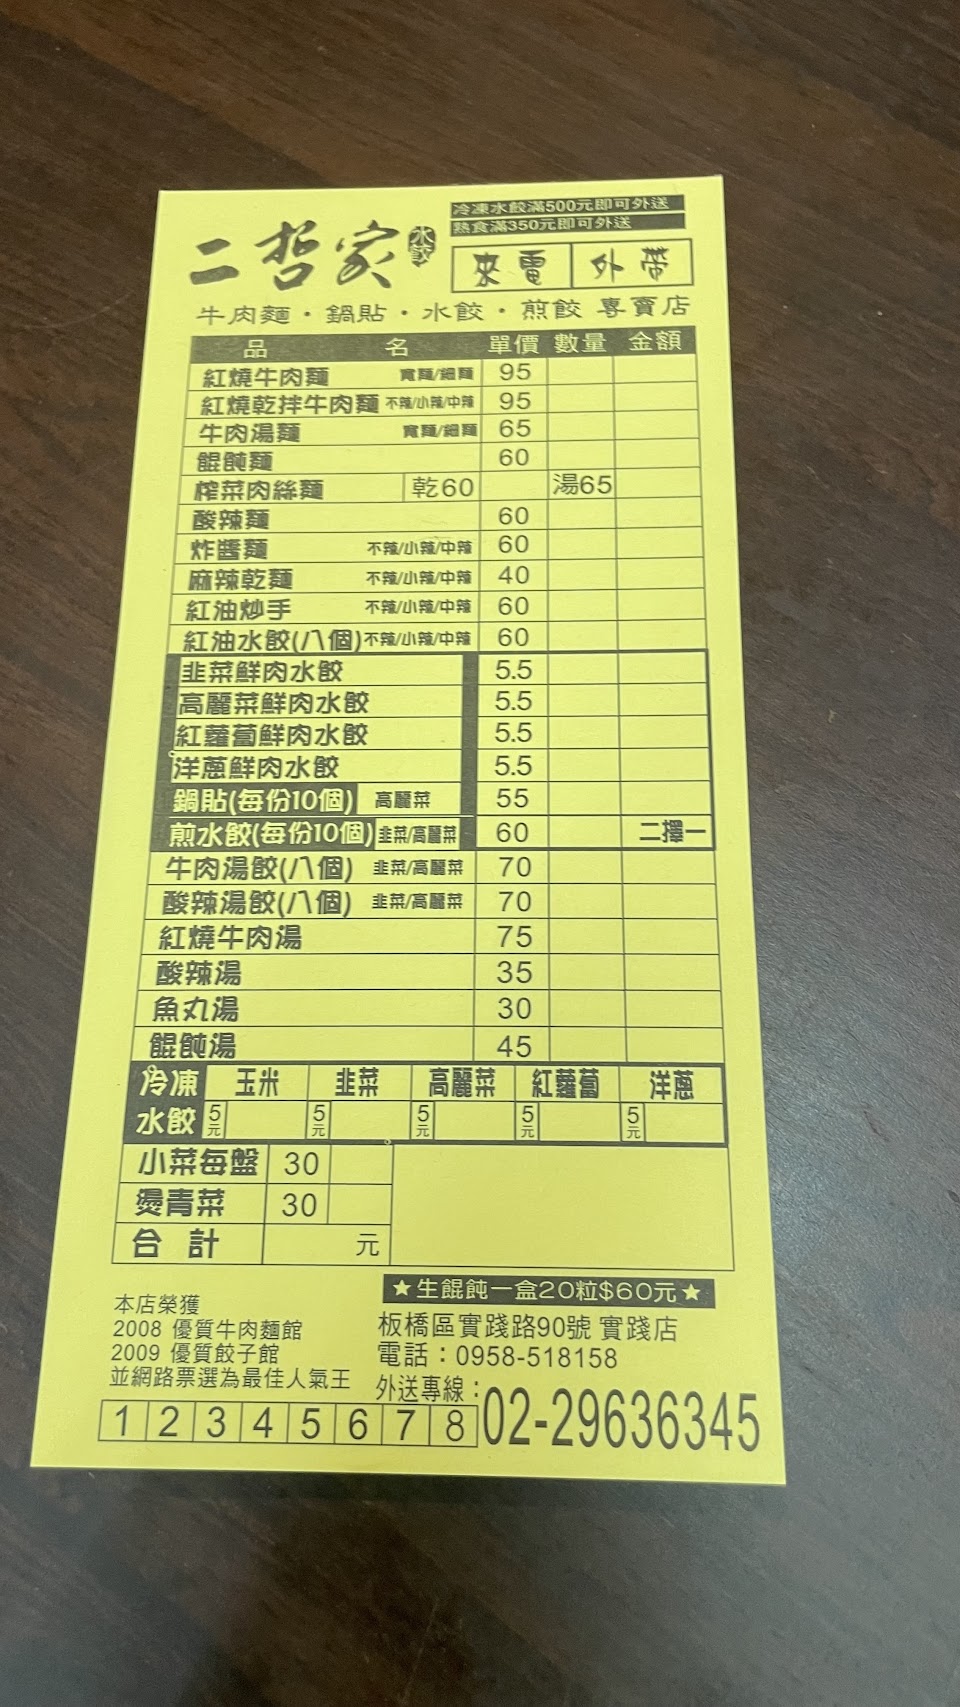 冷凍水餃滿500元即可外送
熟食滿350元即可外送
二哲家 水餃
來電 外帶
牛肉麵・鍋貼・水餃・煎餃 專賣店
品 名 單價 數量 金額
紅燒牛肉麵 寬麵/細麵 95
紅燒乾拌牛肉麵 不辣/小辣/中辣 95
牛肉湯麵 寬麵/細麵 65
餛飩麵 60
榨菜肉絲麵 乾60 湯65
酸辣麵 60
炸醬麵 不辣/小辣/中辣 60
麻辣乾麵 不辣/小辣/中辣 40
紅油炒手 不辣/小辣/中辣 60
紅油水餃(八個) 不辣/小辣/中辣 60
韭菜鮮肉水餃 5.5
高麗菜鮮肉水餃 5.5
紅蘿蔔鮮肉水餃 5.5
洋蔥鮮肉水餃 5.5
鍋貼(每份10個) 高麗菜 55
煎水餃(每份10個) 韭菜/高麗菜 60 二擇一
牛肉湯餃(八個) 韭菜/高麗菜 70
酸辣湯餃(八個) 韭菜/高麗菜 70
紅燒牛肉湯 75
酸辣湯 35
魚丸湯 30
餛飩湯 45
冷凍 玉米 韭菜 高麗菜 紅蘿蔔 洋蔥
水餃 5元 5元 5元 5元 5元
小菜每盤 30
燙青菜 30
合計 元
★生餛飩一盒20粒$60元★
本店榮獲
2008 優質牛肉麵館
2009 優質餃子館
並網路票選為最佳人氣王
板橋區實踐路90號 實踐店
電話：0958-518158
外送專線：02-29636345
1 2 3 4 5 6 7 8